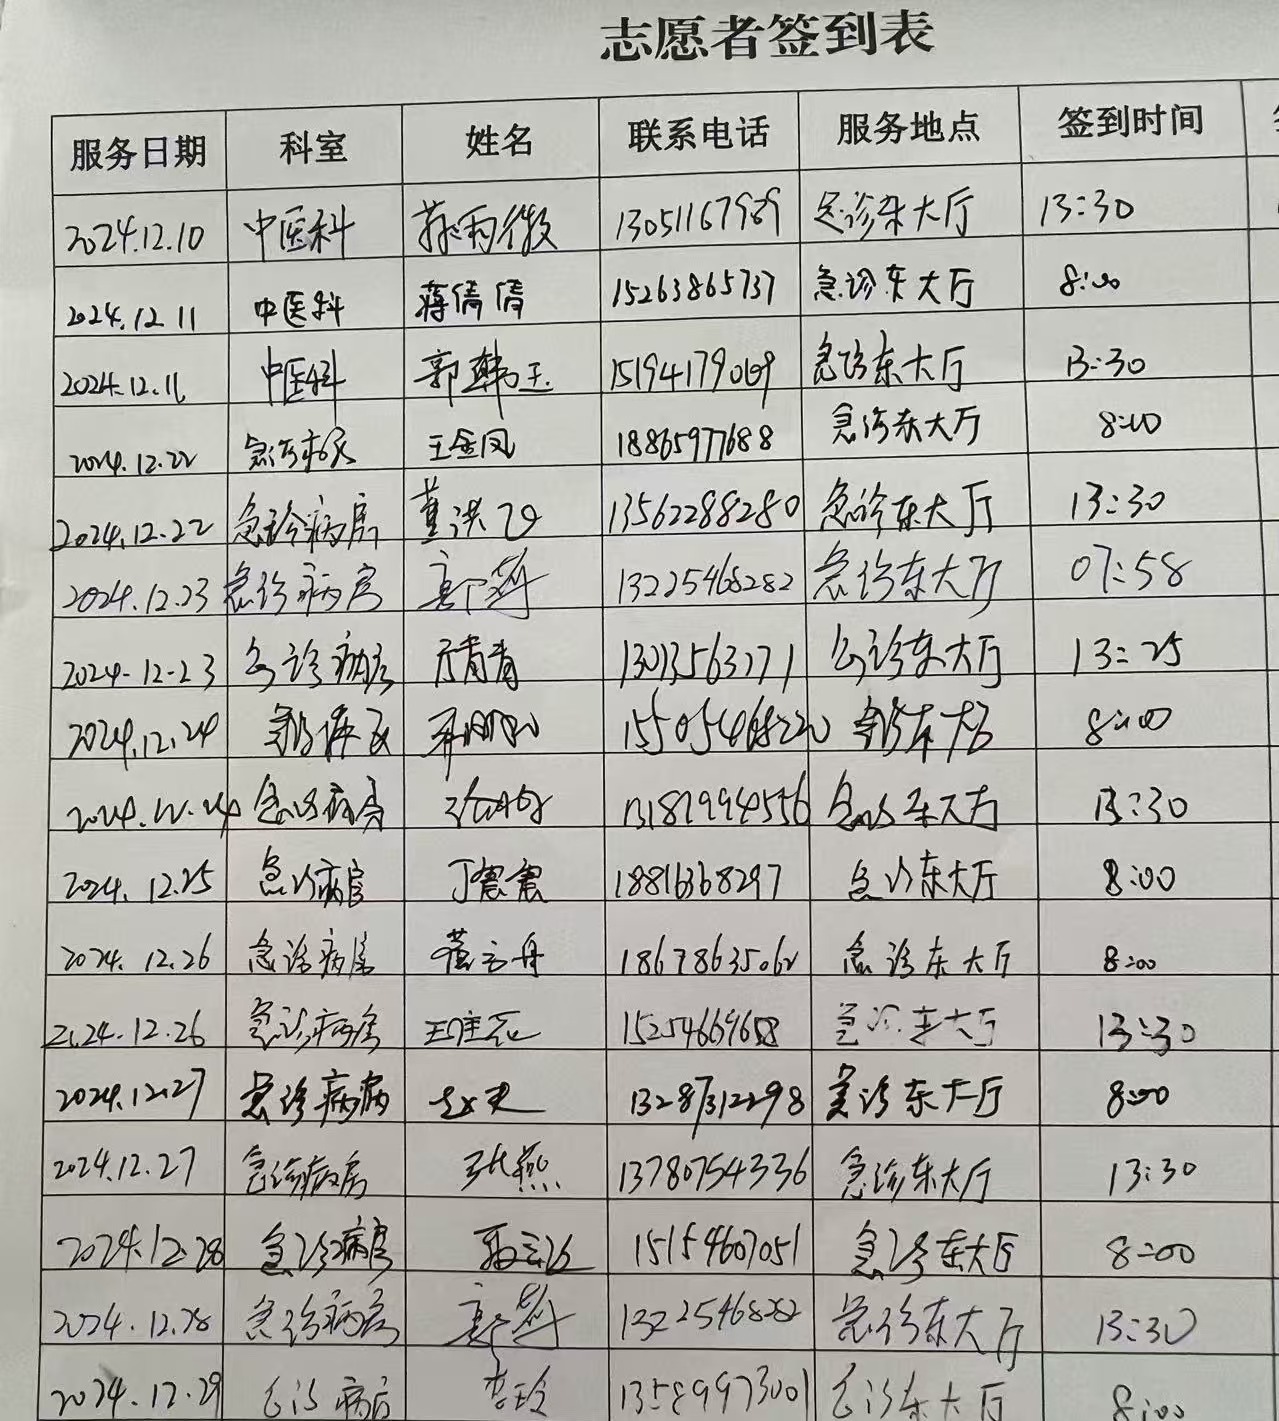 志愿者签到表
服务日期 科室 姓名 联系电话 服务地点 签到时间
2024.12.10 中医科 13051167989 急诊东大厅 13:30
2024.12.11 中医科 蒋倩倩 15263865737 急诊东大厅 8:00
2024.12.11 中医科 郭韩玉 15194179069 急诊东大厅 13:30
2024.12.22 急诊病房 王金凤 18865977688 急诊东大厅 8:00
2024.12.22 急诊病房 董洪 13562288280 急诊东大厅 13:30
2024.12.23 急诊病房 13225468282 急诊东大厅 07:58
2024.12.23 急诊病房 青青 13013563171 急诊东大厅 13:25
2024.12.24 急诊病房 急诊东大厅 8:00
2024.12.24 急诊病房 急诊东大厅 13:30
2024.12.25 急诊病房 丁震震 18816368297 急诊东大厅 8:00
2024.12.26 急诊病房 18678635062 急诊东大厅 8:00
2024.12.26 急诊病房 15254669658 急诊东大厅 13:30
2024.12.27 急诊病房 13287312298 急诊东大厅 8:00
2024.12.27 急诊病房 张燕 13780754336 急诊东大厅 13:30
2024.12.28 急诊病房 15154607051 急诊东大厅 8:00
2024.12.28 急诊病房 13225468282 急诊东大厅 13:30
2024.12.29 急诊病房 李玲 13589973001 急诊东大厅 8:00